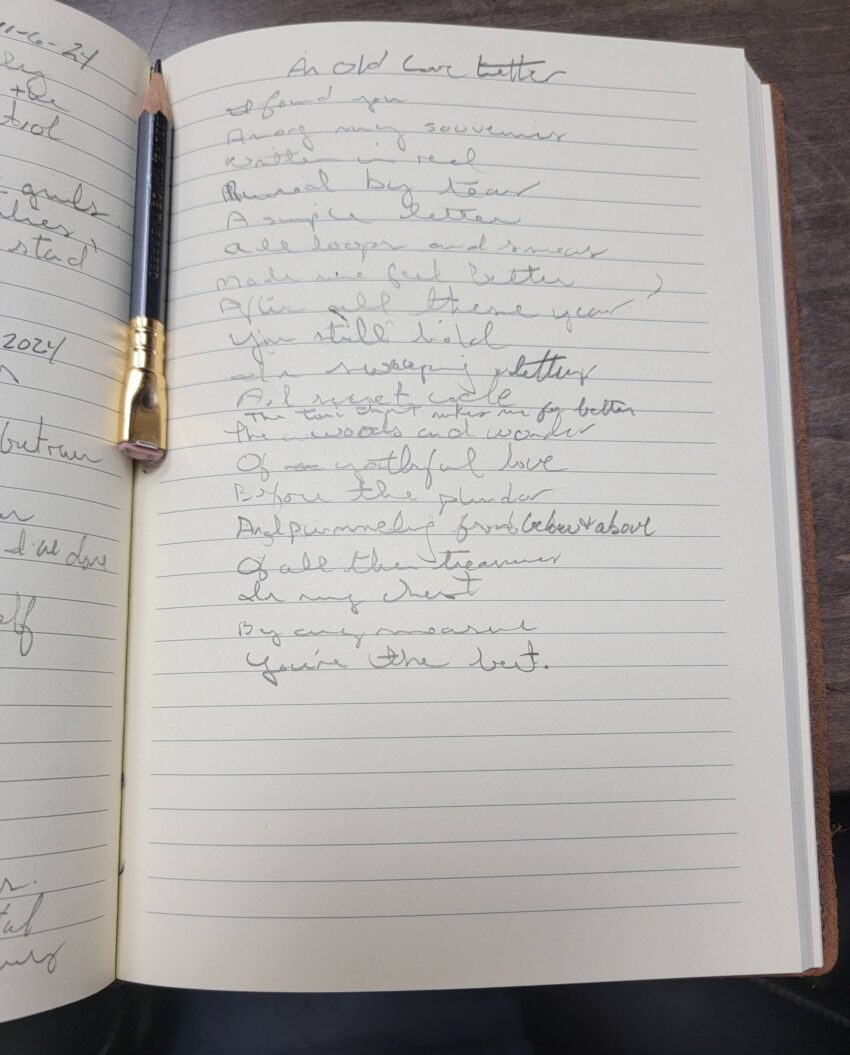 11-6-24
+
trol
goals
stand
2024
between
I've done
elf
An Old Love Letter
I found you
Among my souvenirs
Written in red
Buried by tears
A simple letter
all loops and smears
Made me feel better
After all these years
You still hold
In sweeping letters
A secret code
The that makes me far better
the words and wonder
Of youthful love
Before the plunder
And pummeling from below + above
Of all the treasures
In my chest
By any measure
You're the best.